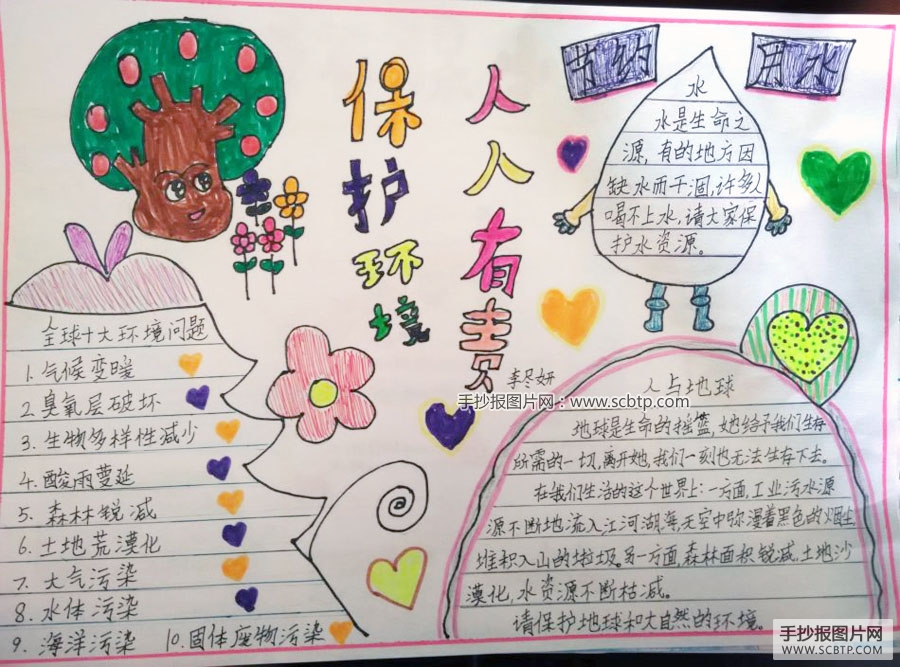 保护环境
人人有责
节约
用水
水
水是生命之
源,有的地方因
缺水而干涸,许多人
喝不上水,请大家保
护水资源。
全球十大环境问题
1. 气候变暖
2. 臭氧层破坏
3. 生物多样性减少
4. 酸雨蔓延
5. 森林锐减
6. 土地荒漠化
7. 大气污染
8. 水体污染
9. 海洋污染 10.固体废物污染
手抄报图片网:www.scbtp.com
人与地球
地球是生命的摇篮,她给予我们生存
所需的一切,离开她,我们一刻也无法生存下去。
在我们生活的这个世界上:一方面,工业污水源
源不断地流入江河湖海,天空中弥漫着黑色的烟尘
堆积入山的垃圾。另一方面,森林面积锐减.土地沙
漠化,水资源不断枯减。
请保护地球和大自然的环境。
手抄报图片网
WWW.SCBTP.COM